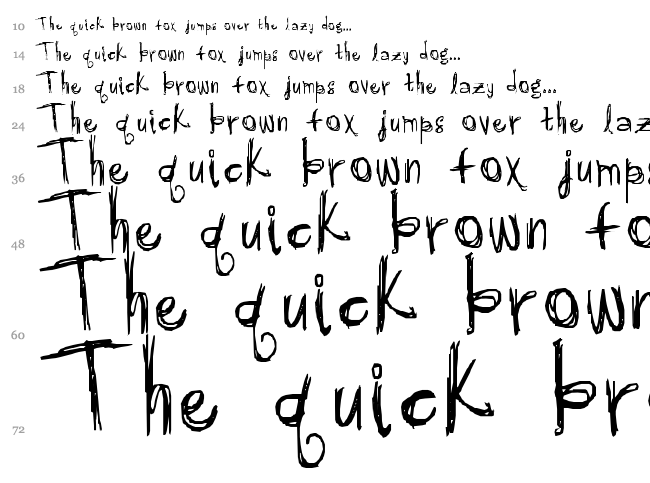 10 The quick brown fox jumps over the lazy dog...
14 The quick brown fox jumps over the lazy dog...
18 The quick brown fox jumps over the lazy dog...
24 The quick brown fox jumps over the laz
36 The quick brown fox jumps
48 The quick brown fo
60 The quick brown
72 The quick bro